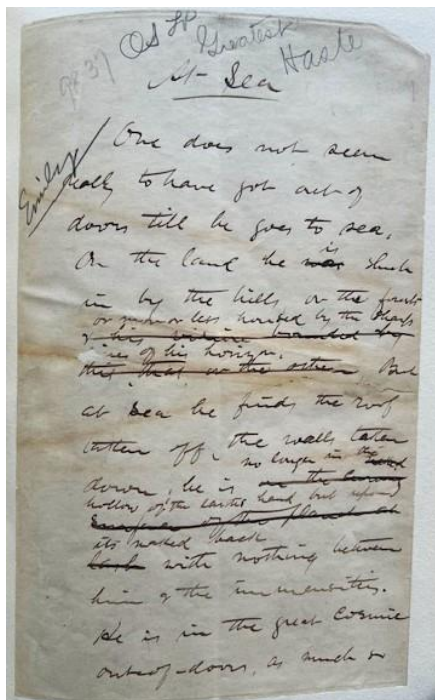 gp 37 OS LP Greatest Haste
At Sea
Emily
One does not seem
really to have got out of
doors till he goes to sea.
On the land he was is shut
in by the hills or the forests
or more or less housed by the sharp
of his bounded by
lines of his horizon.
this, that or the other. But
at Sea he finds the roof
taken off, the walls taken
no longer in the
down, he is on the
hollow of the earth's hand, but upon
Surface of the planet
its naked back
with nothing between
him & the immensities.
He is in the great Cosmic
out-of-doors, as much so